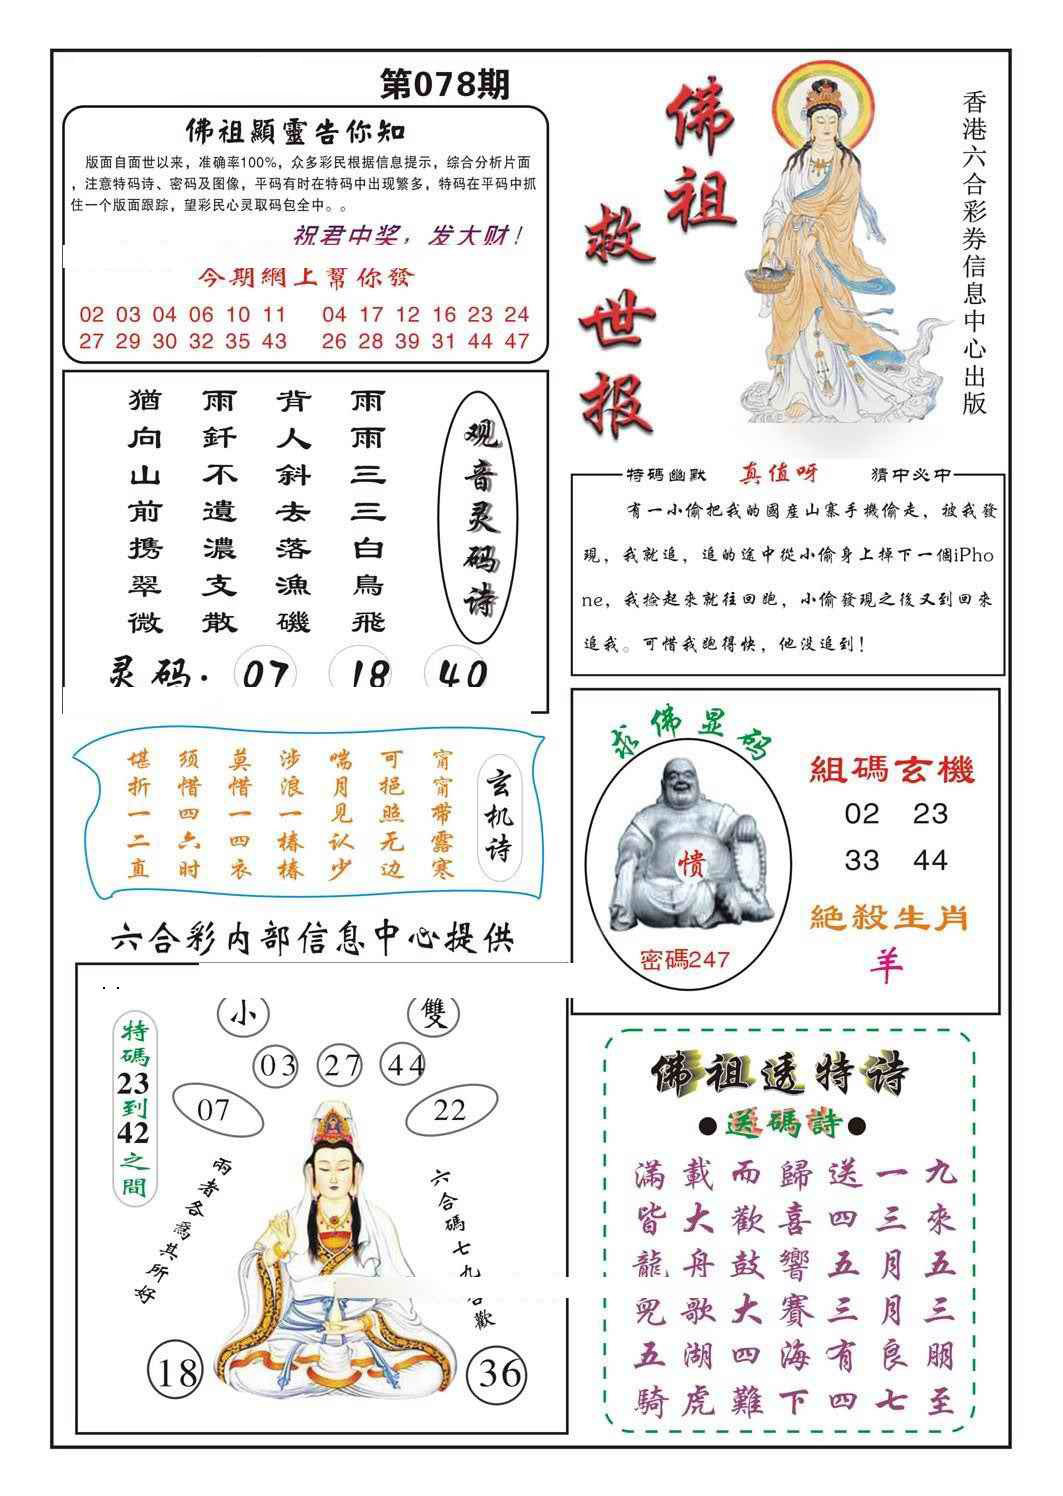 第078期
佛祖顯靈告你知
版面自面世以来，准确率100%，众多彩民根据信息提示，综合分析片面
，注意特码诗、密码及图像，平码有时在特码中出现繁多，特码在平码中抓
住一个版面跟踪，望彩民心灵取码包全中。。
祝君中奖，发大财！
今期網上幫你發
02 03 04 06 10 11 04 17 12 16 23 24
27 29 30 32 35 43 26 28 39 31 44 47
佛祖
救世报
香港六合彩券信息中心出版
观音灵码诗
雨雨三三白鳥飛
背人斜去落漁磯
雨釺不遺濃支散
猶向山前携翠微
灵码. 07 18 40
特碼幽默 真值呀 猜中必中
有一小偷把我的國産山寨手機偷走，被我發
現，我就追，追的途中從小偷身上掉下一個iPho
ne，我捡起來就往回跑，小偷發現之後又到回來
追我。可惜我跑得快，他没追到！
玄机诗
甯甯带露寒
可挹照无边
喘月见认少
涉浪一椿椿
莫惜一四衣
须惜四六时
堪折一二直
求佛显码
愦
密碼247
組碼玄機
02 23
33 44
絕殺生肖
羊
六合彩内部信息中心提供
特碼23到42之間
小 雙
03 27 44
07 22
兩者各爲其所好
六合碼七九喜歡
18 36
佛祖透特诗
●送碼詩●
滿載而歸送一九
皆大歡喜四三來
龍舟鼓響五月五
兕歌大賽三月三
五湖四海有良朋
騎虎難下四七至